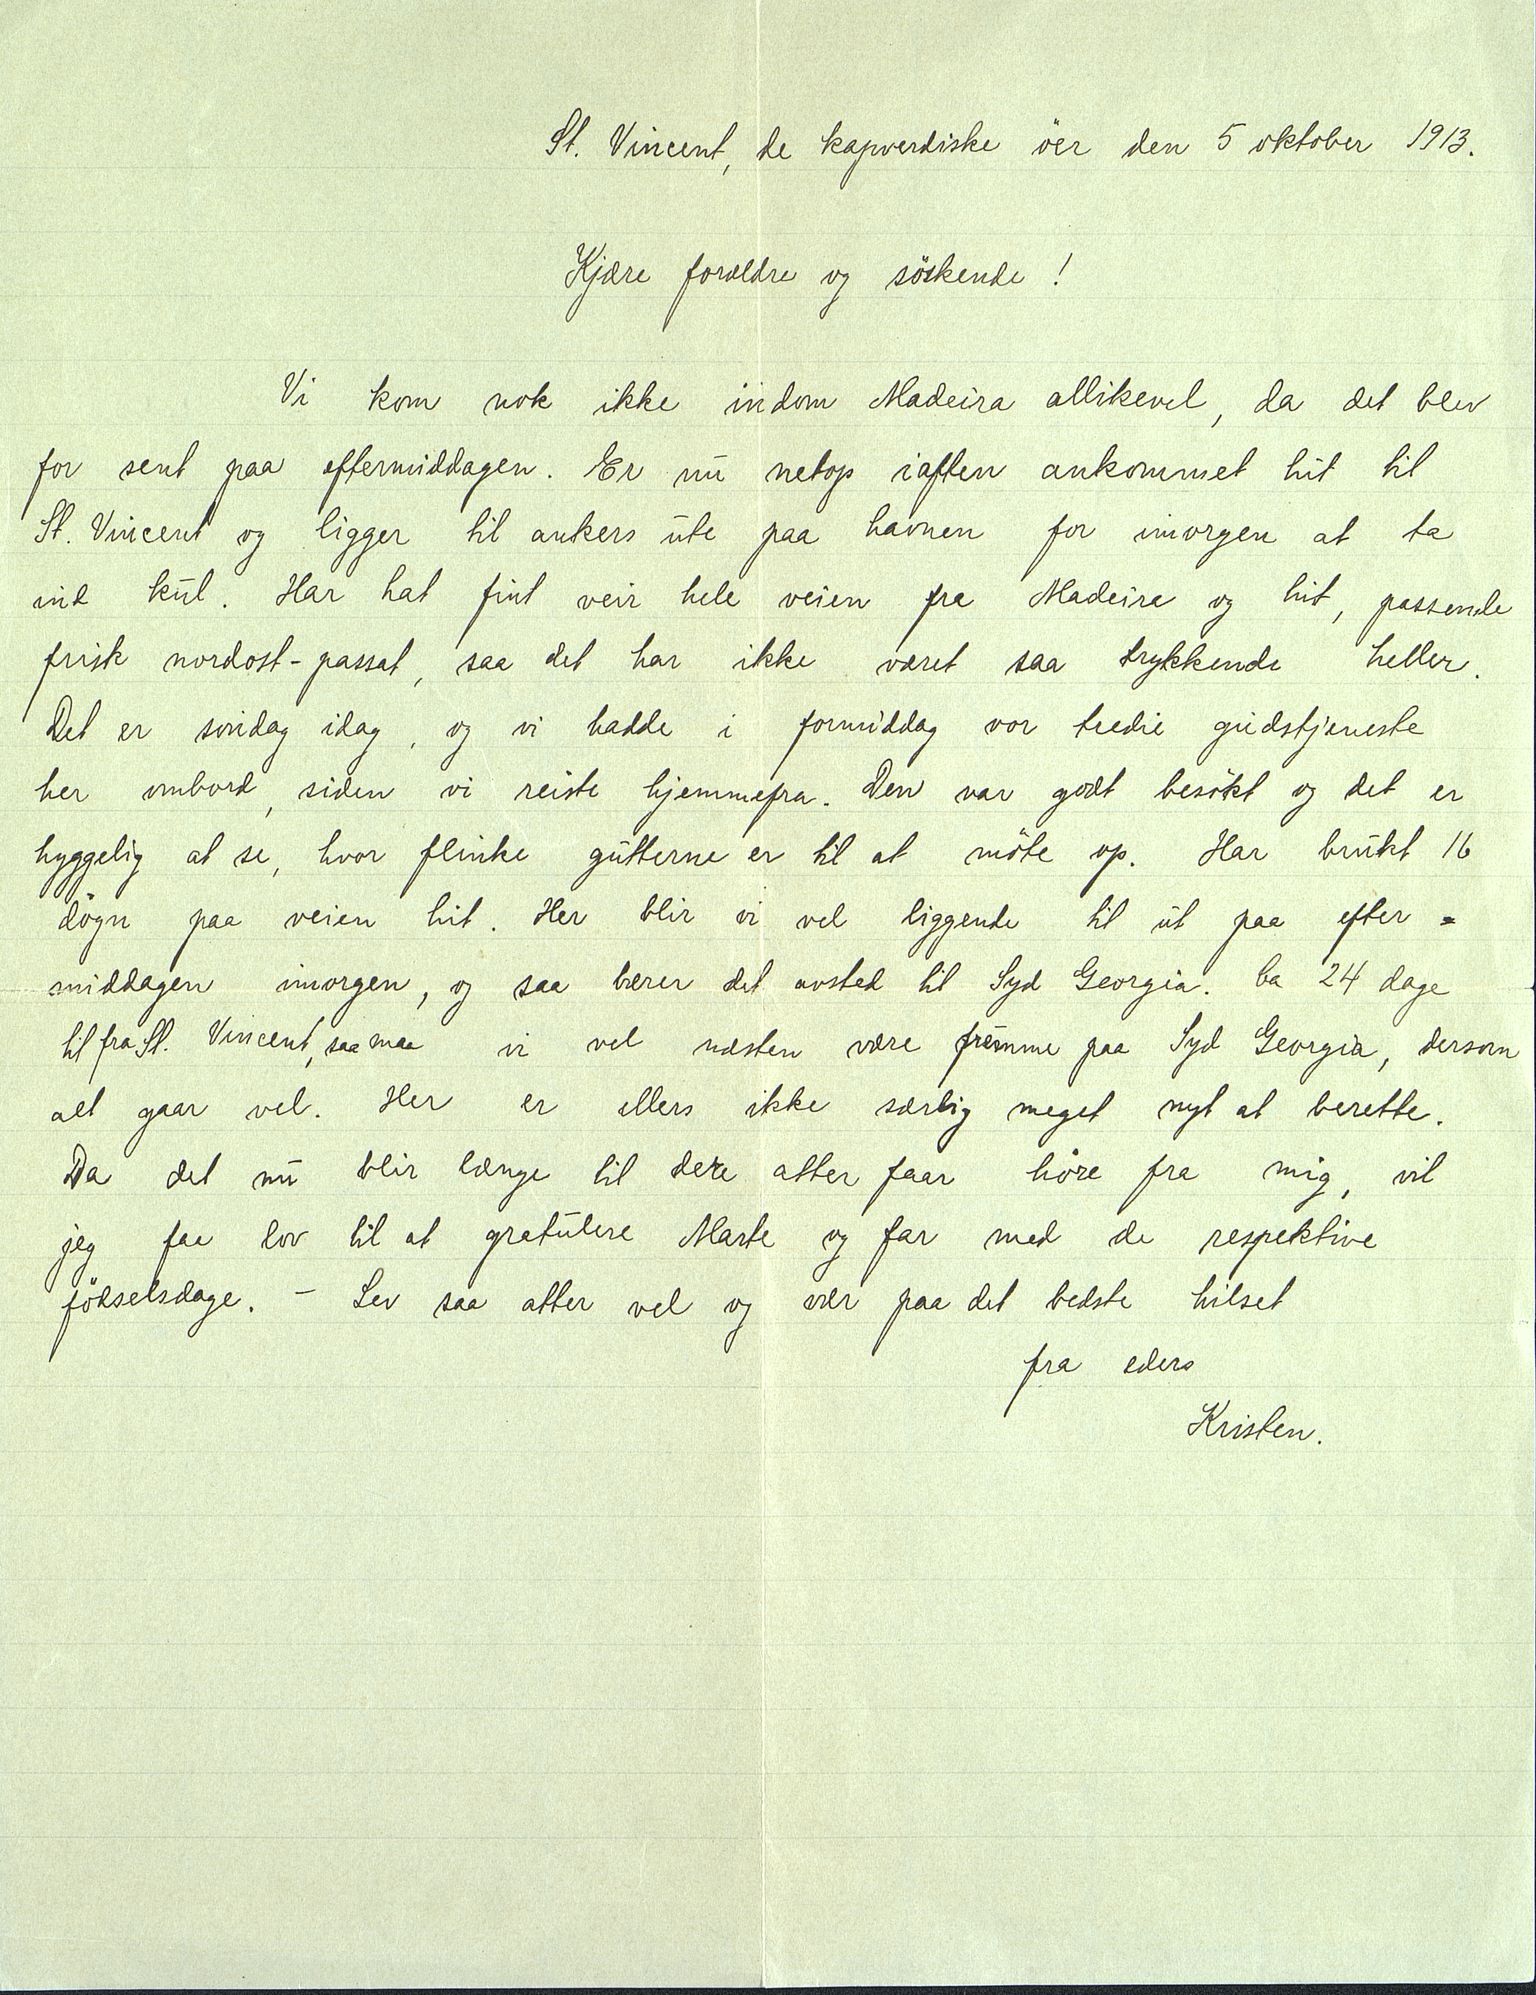 St. Vincent, de kapverdiske öer den 5 oktober 1913.
Kjære forældre og söskende!
Vi kom nok ikke indom Madeira allikevel, da det blev
for sent paa eftermiddagen. Er nu netop iaften ankommet hit til
St. Vincent og ligger til ankers ute paa havnen for imorgen at ta
ind kul. Har hat fint veir hele veien fra Madeira og hit, passende
frisk nordost-passat, saa det har ikke været saa trykkende heller.
Det er söndag idag, og vi hadde i formiddag vor tredie gudstjeneste
her ombord, siden vi reiste hjemmefra. Den var godt besökt og det er
hyggelig at se, hvor flinke gutterne er til at möte op. Har brukt 16
dögn paa veien hit. Her blir vi vel liggende til ut paa efter=
middagen imorgen, og saa bærer det avsted til Syd Georgia. Ca 24 dage
til fra St. Vincent, saa maa vi vel næsten være fremme paa Syd Georgia, dersom
alt gaar vel. Her er ellers ikke særlig meget nyt at berette.
Da det nu blir længe til dere atter faar höre fra mig, vil
jeg faa lov til at gratulere Marte og far med de respektive
födselsdage. - Lev saa atter vel og vær paa det bedste hilset
fra eders
Kristen.